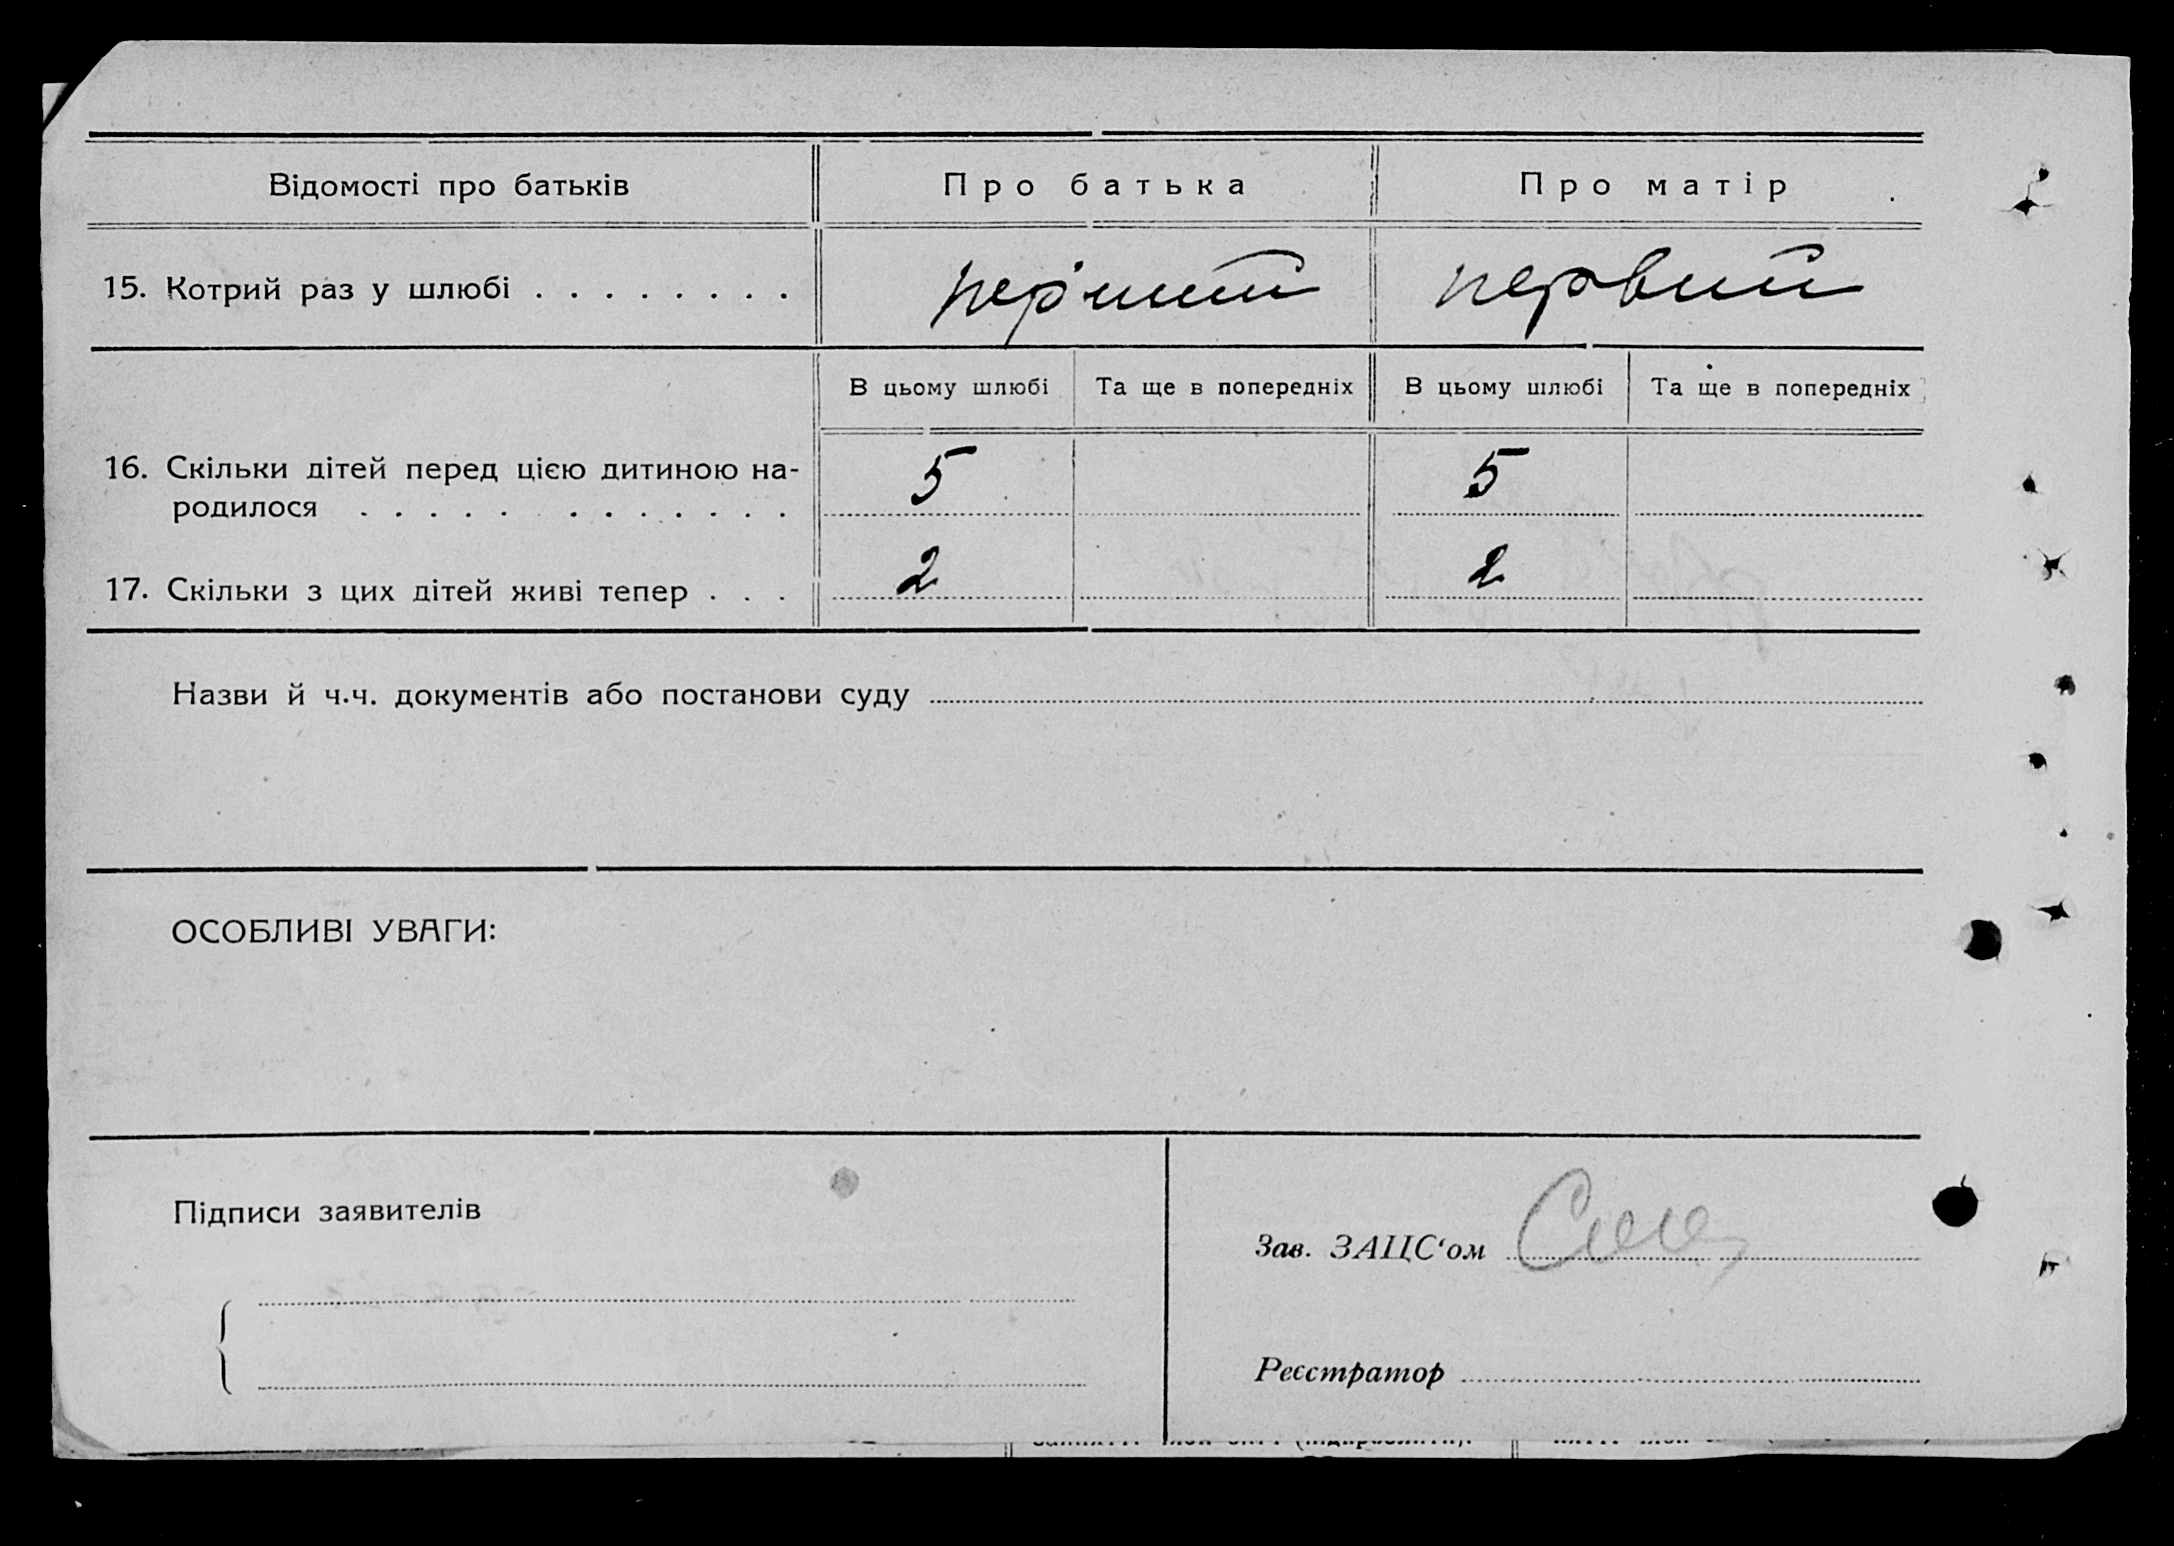 Відомості про батьків Про батька Про матір
15. Котрий раз у шлюбі . . . . . . . . перший первий
В цьому шлюбі Та ще в попередніх В цьому шлюбі Та ще в попередніх
16. Скільки дітей перед цією дитиною на-
родилося . . . . . . . . . . . . . 5 5
17. Скільки з цих дітей живі тепер . . . 2 2
Назви й ч.ч. документів або постанови суду
ОСОБЛИВІ УВАГИ:
Підписи заявителів
Зав. ЗАЦС‘ом
Реєстратор